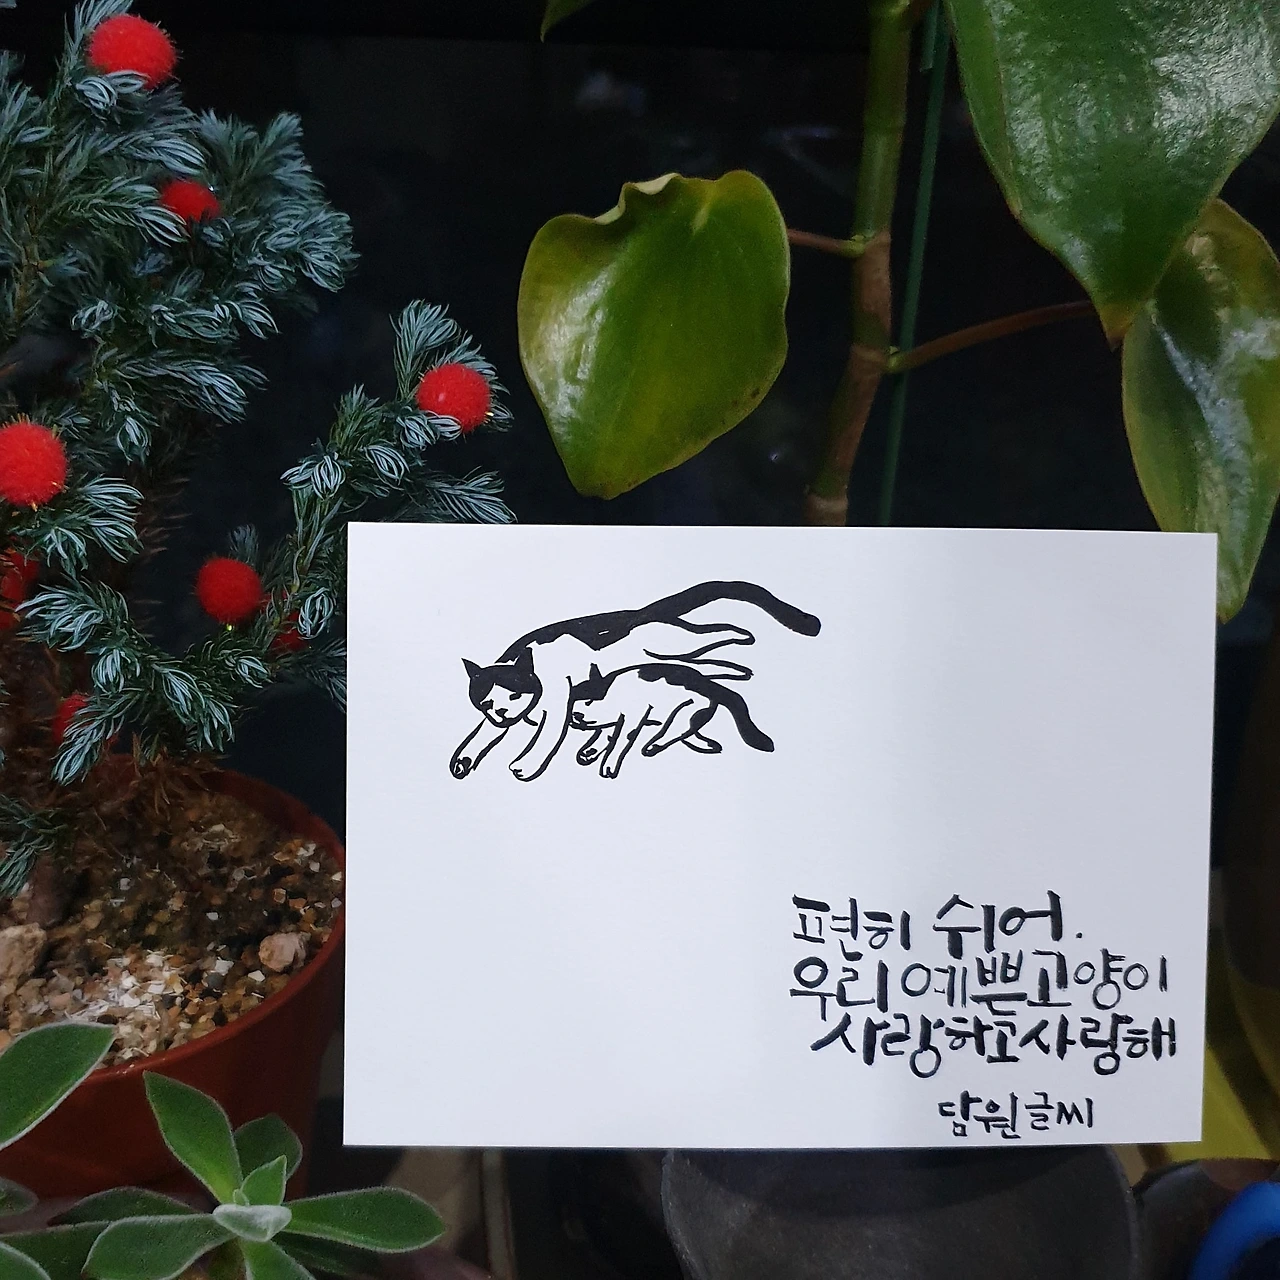 편히 쉬어.
우리 예쁜고양이
사랑하고사랑해
담원글씨